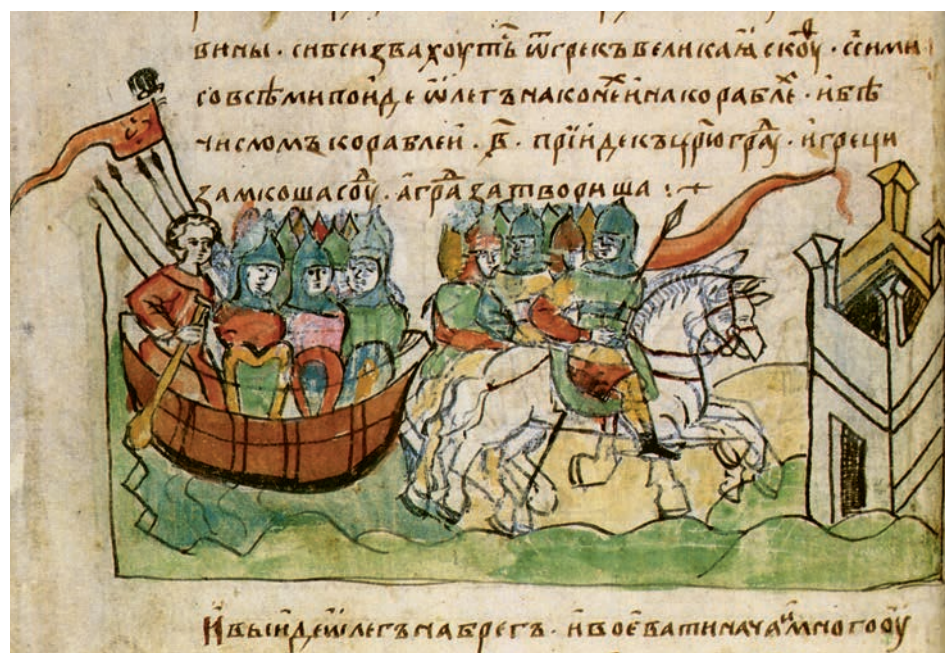 вины · сивсизвахоуть ѿ грекъ великаꙗ скѹⷴ · сими
совсѣми поиде ѡлегъ наконеⷯ инакораблеⷯ · ивѣ
числомъ кораблеи · в҃ · прїиде къ црⷭ҇юграⷣу · игреци
замкоша соуⷣ · аграⷣ затвориша :
И выиде ѡлегъ набрегъ · ивоевати начаⷲ҇ многооу